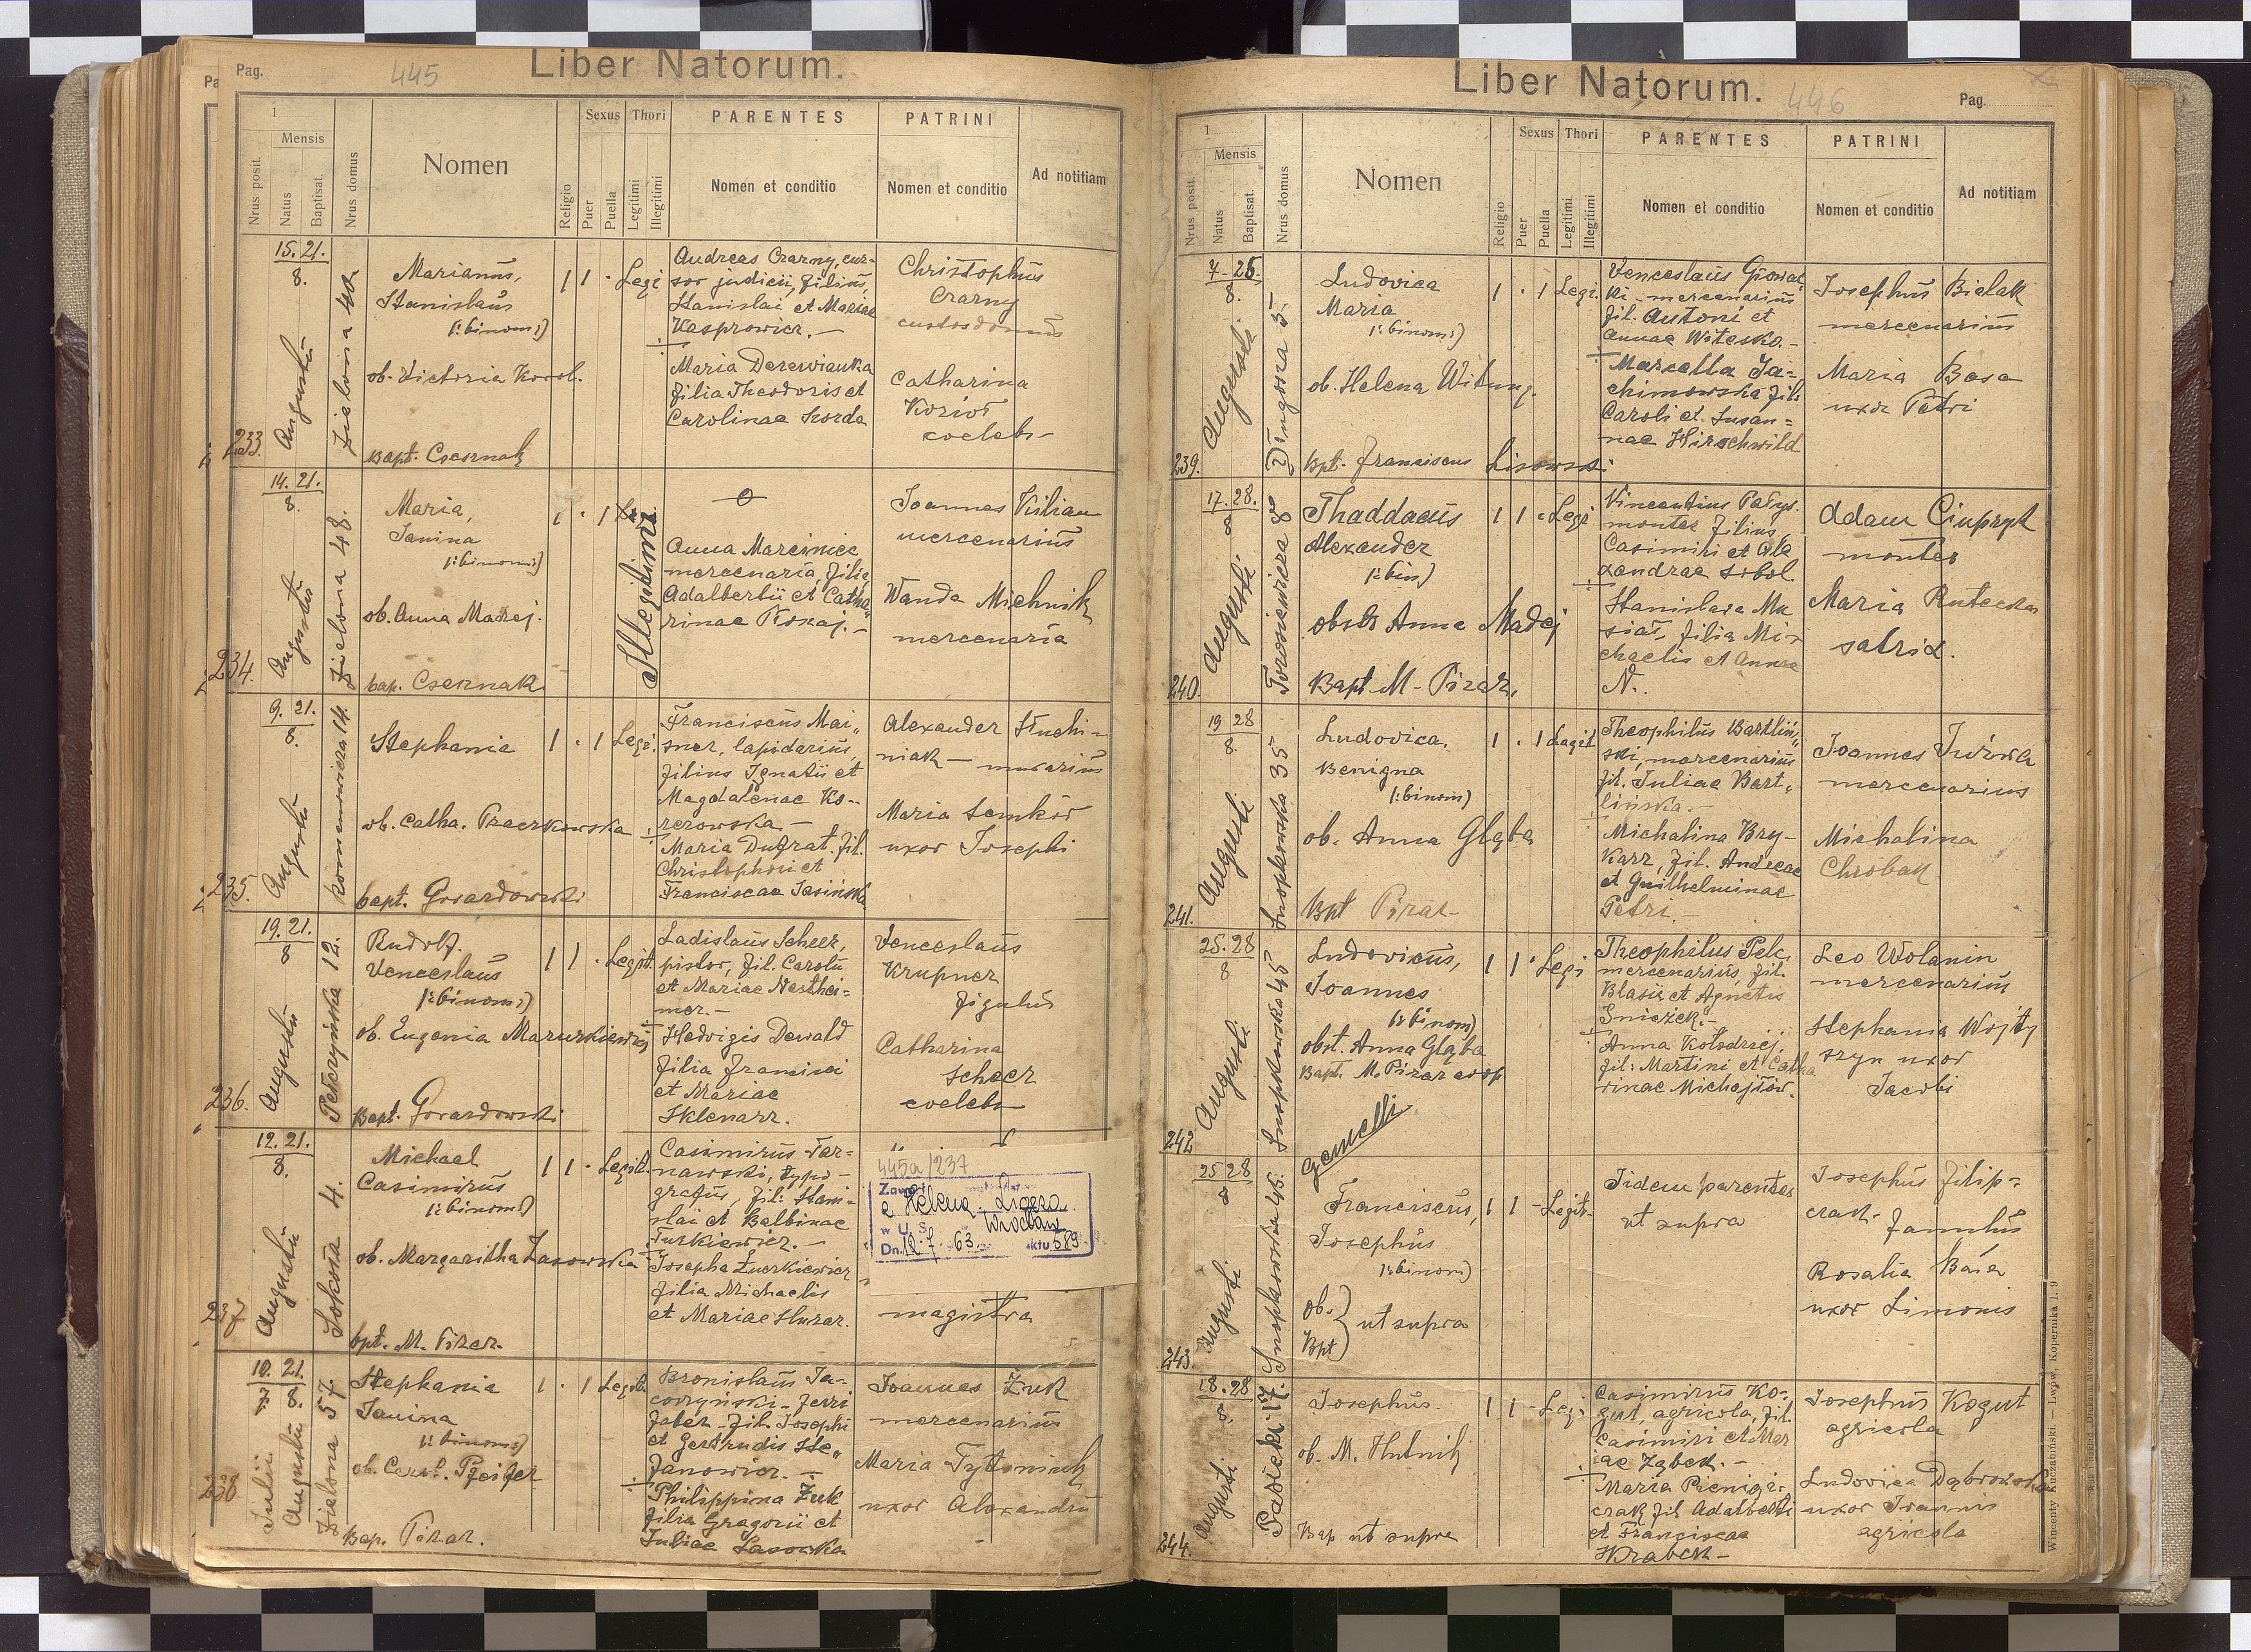 Pag.
445
Liber Natorum.
1
Mensis
Nrus posit.
Natus
Baptisat.
Nrus domus
Nomen
Religio
Sexus
Puer
Puella
Thori
Legitimi
Illegitimi
PARENTES
Nomen et conditio
PATRINI
Nomen et conditio
Ad notitiam
233.
15. 21.
8.
Augusti
Zielona 42
Marianus,
Stanislaus
/:binom:/
ob. Victoria Korol.
Bapt. Csesznak
1 1 - Legi
Andreas Czarny, cur-
sor judicii, filius
Stanislai et Mariae
Kasprowicz. —
Maria Derewianka
filia Theodoris et
Carolinae Korda
Christophus
Czarny
custos domus
Catharina
Kozioł
coelebs
234.
14. 21.
8.
Augusti
Zielona 48.
Maria,
Janina
/:binom:/
ob. Anna Madzej.
bap. Csesznak
1 - 1
Illegitima
Anna Marciniec
mercenaria, filia
Adalbertii et Catha„
rinae Kokaj. —
Joannes Kilian
mercenarius
Wanda Michnik
mercenaria
235.
9. 21.
8.
Augusti
14.
Stephania
ob. Catha. Praczkowska
bapt. Gorardowski
1 - 1 Legi.
Franciscus Mai„
sner, lapidarius,
filius Ignatii et
Magdalenae Ko-
rerowska —
Maria Dufrat. fil.
Christophori et
Franciscae Jasińska
Alexander Stuchi-
niak — murarius
Maria Semków
uxor Josephi
236.
19. 21.
8
Augusti
Pełczyńska 12.
Rudolf.
Venceslaus
/:binom:/
ob. Eugenia Mazurkiewicz
Bapt. Gorardowski
1 1 - Legit.
Ladislaus Scheer,
pistor, fil. Caroli
et Mariae Nesthei=
mer. —
Hedvigis Dewald
filia Francisci
et Mariae
Sklenarz.
Venceslaus
Krupner
figulus
Catharina
Scheer
coelebs
237
12. 21.
8.
Augusti
Sokoła 4.
Michael
Casimirus
/:binom:/
ob. Margaritha Lasowska
bpt. M. Pirar.
1 1 - Legit.
Casimirus Tar=
nawski, typo-
grafus, fil: Stani-
slai et Balbinae
Turkiewicz. —
Josepha Żurkiewicz
filia Michaelis
et Mariae Huzar.
445a/237
Zawarł
z Helena
w U.S. Wrocław
Dn. 12.7.63. aktu 589
magistra
238
10. 21.
7 8.
Julii
Augusti
Zielona 57.
Stephania
Janina
/:binom:/
ob. Carol. Pfeifer
Bap. Pirar.
1 - 1 Legit.
Bronislaus Ja-
corzyński - ferri
faber - fil. Josephi
et Gertrudis Ste„
fanowicz. —
Philippina Żuk
filia Gregorii et
Juliae Sasowska
Joannes Żuk
mercenarius
Maria Tytoniuk
uxor Alexandri
Liber Natorum.
446
Pag.
1
Mensis
Nrus posit.
Natus
Baptisat.
Nrus domus
Nomen
Religio
Sexus
Puer
Puella
Thori
Legitimi
Illegitimi
PARENTES
Nomen et conditio
PATRINI
Nomen et conditio
Ad notitiam
239.
7 - 25.
8.
Augusti
5
Ludovica
Maria
/:binom:/
ob. Helena Witung.
Bpt. Franciscus Lisowski
1 - 1 Legi.
Venceslaus
ki - mercenarius
fil. Antoni et
Annae Witesko. —
Marcella Ja=
chimowska fil.
Caroli et Susan=
nae Hirschwild
Josephus Bielak
mercenarius
Maria Basa
uxor Petri
240
17. 28.
8
Augusti.
8
Thaddaeus
Alexander
/:bin/
obst. Anna Madej
Bapt. M. Pirar.
1 1 - Legi
Vincentius Patys.
monter filius
Casimiri et Ale
xandrae Sobol.
Stanislava Mu
siał, filia Mi-
chaelis et Annae
N..
Adam Ciupryk
monter
Maria Rutecka
satrix.
241.
19 28
8.
Augusti
Snopkowska 35
Ludovica,
Benigna
/:binom/
ob. Anna Gląba
Bpt Pirar
1 . 1 Legit
Theophilus Bartliń„
ski, mercenarius
fil. Juliae Bart„
lińska. —
Michalina Bry-
karz, fil. Andreae
et Guilhelminae
Petri. —
Joannes Jużwa
mercenarius
Michalina
Chrobak
242
25. 28
8
Augusti
Snopkowska 45
Ludovicus,
Joannes
/:binom/
obst. Anna Gląba
Bapt. M. Pirar coop
Gemelli
1 1 - Legi
Theophilus Pelc,
mercenarius, fil.
Blasii et Agnetis
Śnieżek. —
Anna Kołodziej,
fil: Martini et Catha
rinae Michajłów.
Leo Wolanin
mercenarius
Stephania Wojty
szyn uxor
Jacobi
243.
25 28
8
Augusti
Snopkowska 45.
Franciscus,
Josephus
/:binom/
ob.
Bpt } ut supra
1 1 - Legit.
Iidem parentes
ut supra
Josephus Filip=
czak - famulus
Rosalia Baśa
uxor Simonis
244.
18. 28
8.
Augusti
Pasieki 17.
Josephus.
ob. M. Hutnik
Bap ut supra
1 1 - Legi
Casimirus Ko-
gut, agricola, fil.
Casimiri et Mar
iae Ząbek. —
Maria Pienięż-
czak fil Adalberti
et Franciscae
Wrabek —
Josephus Kogut
agricola
Ludovica Dąbrowska
uxor Joannis
agricola
Wincenty Kuczabiński — Lwów, Kopernika l. 9